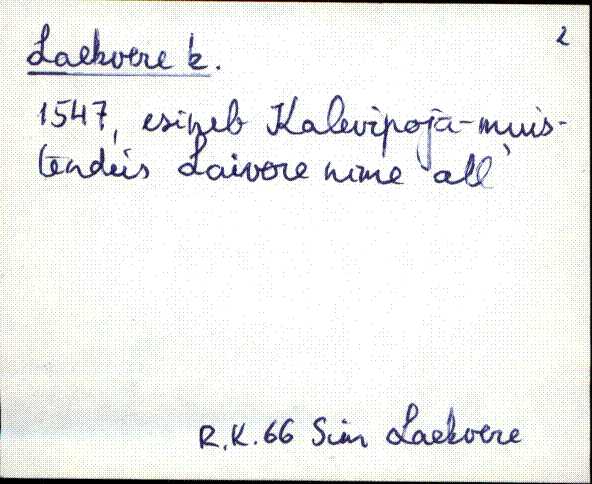 2
Laekvere k.
1547, esineb Kalevipoja-muis-
tendeis Laivere nime all
R.K. 66 Sim Laekvere